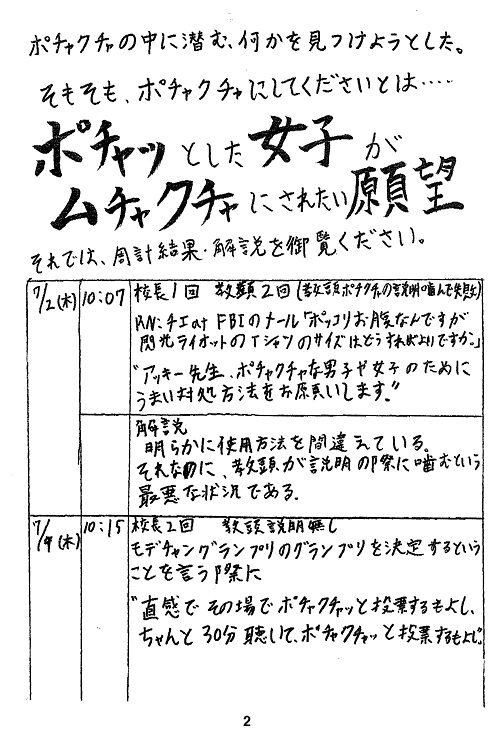 ポチャクチャの中に潜む、何かを見つけようとした。
そもそも、ポチャクチャにしてくださいとは‥‥
ポチャッとした女子が
ムチャクチャにされたい願望
それでは、周計結果・解説を御覧ください。
7/2(木) 10:07 校長1回 教頭2回(教頭ポチャクチャの説明噛んで失敗)
RN:チエat FBIのメール「ポッコリお腹なんですが
閃光ライオットのTシャツのサイズはどうすればよいですか。」
"アッキー先生、ポチャクチャな男子や女子のために
うまい対処方法をお願いします。"
解説
明らかに使用方法を間違えている。
それなのに、教頭が説明の際に噛むという
最悪な状況である。
7/9(木) 10:15 校長2回 教頭説明無し
モデチャングランプリのグランプリを決定するという
ことを言う際に
"直感でその場でポチャクチャッと投票するもよし、
ちゃんと30分聴いて、ポチャクチャッと投票するもよし。"
2